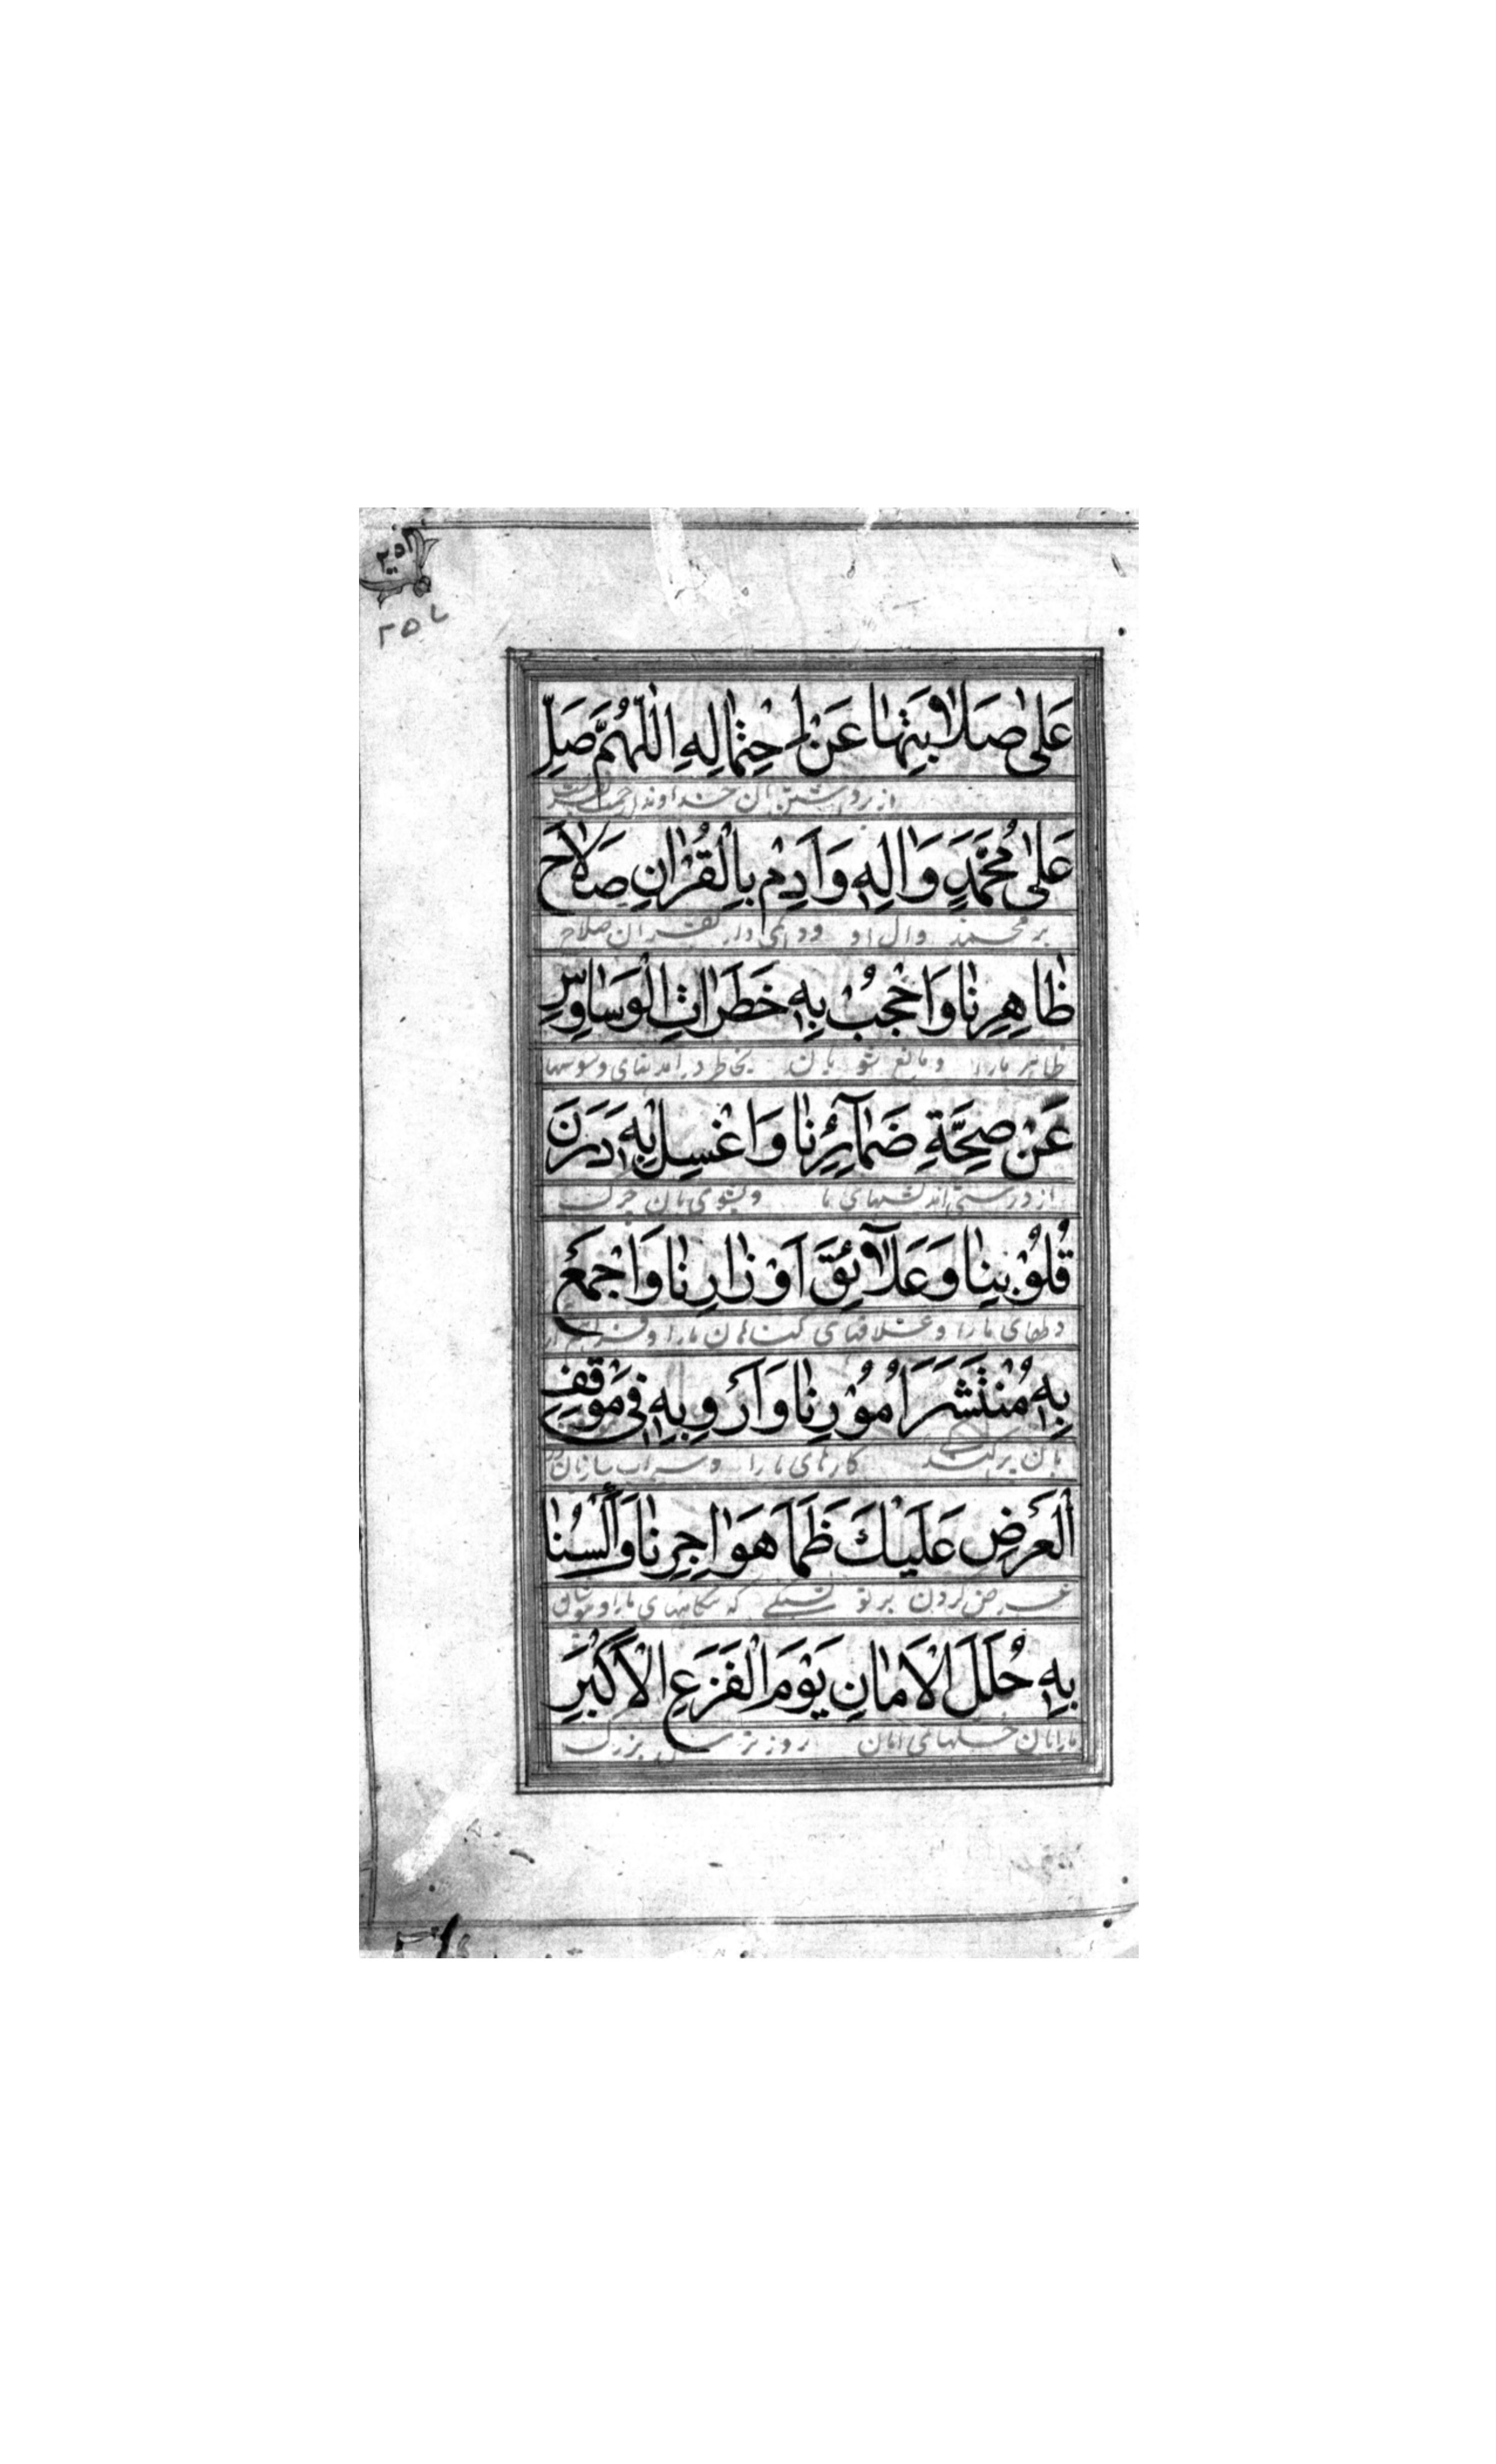 ٢٥٦
٢٥٧
عَلىٰ صَلابَتِهٰا عَنْ اِحْتِمٰالِهِ اَللّٰهُمَّ صَلِّ
از برداشتن آن خداوندا رحمت
عَلىٰ مُحَمَّدٍ وَاٰلِهِ وَاَدِمْ بِالْقُرْاٰنِ صَلاٰحَ
بر محمد وال او ودایمی دار بقران صلاح
ظٰاهِرِنٰا وَاحْجُبْ بِهِ خَطَرٰاتِ الْوَسٰاوِسِ
ظاهر مارا ومانع شو بان بخاطر درآمدنهای وسوسها
عَنْ صِحَّةِ ضَمٰآئِرِنٰا وَاغْسِلْ بِهِ دَرَنَ
از درستی اندیشهای ما وبشوی بان چرک
قُلُوْبِنٰا وَعَلآٰئِقَ اَوْزٰارِنٰا وَاجْمَعْ
دلهای مارا وعلاقهای کناهان مارا و
بِهِ مُنْتَشَرَ اُمُوْرِنٰا وَاَرْوِ بِهِ فِى مَوْقِفِ
بان پراکنده کارهای مارا وسیراب ساز بان در
الْعَرْضِ عَلَيْكَ ظَمَأَ هَوٰاجِرِنٰا وَاَلْسُنٰا
عرض کردن بر تو تشنکی که مارا
بِهِ حُلَلَ الْاَمٰانِ يَوْمَ الْفَزَعِ الْاَكْبَرِ
مارا بان حلهای امان روز ترس بزرک